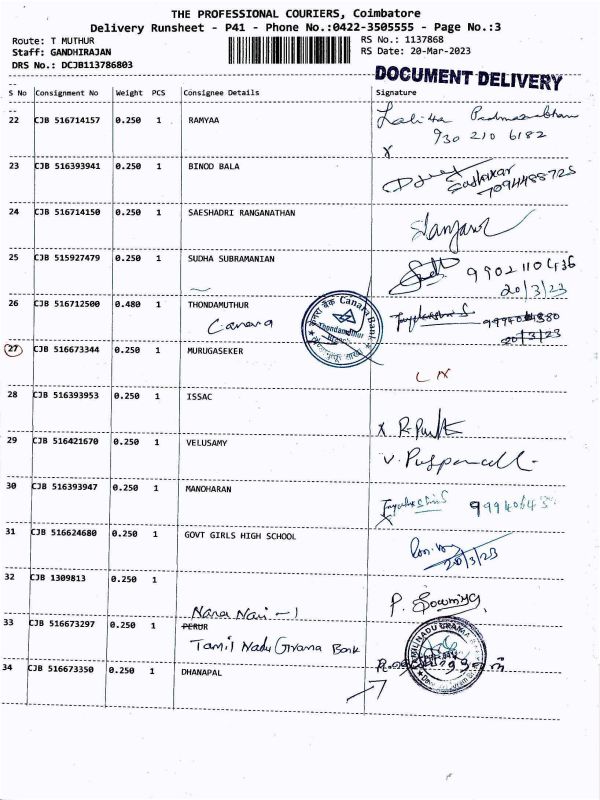 THE PROFESSIONAL COURIERS, Coimbatore
Delivery Runsheet - P41 - Phone No.:0422-3505555 - Page No.:3
Route: T MUTHUR
RS No.: 1137868
Staff: GANDHIRAJAN
RS Date: 20-Mar-2023
DRS No.: DCJB113786803
DOCUMENT DELIVERY
S No Consignment No Weight PCS Consignee Details Signature
22 CJB 516714157 0.250 1 RAMYAA Lalitha Padmanabhan
930 210 6182
X
23 CJB 516393941 0.250 1 BINOD BALA
7094488725
24 CJB 516714150 0.250 1 SAESHADRI RANGANATHAN
25 CJB 515927479 0.250 1 SUDHA SUBRAMANIAN
20/3/23
26 CJB 516712500 0.480 1 THONDAMUTHUR
Canara
Canara Bank
Thondamuthur
20/3/23
27 CJB 516673344 0.250 1 MURUGASEKER
28 CJB 516393953 0.250 1 ISSAC
29 CJB 516421670 0.250 1 VELUSAMY
30 CJB 516393947 0.250 1 MANOHARAN
31 CJB 516624680 0.250 1 GOVT GIRLS HIGH SCHOOL
20/3/23
32 CJB 1309813 0.250 1
P. Sowmiya
Nana Nani - 1
33 CJB 516673297 0.250 1 PERUR
Tamil Nadu Grama Bank
34 CJB 516673350 0.250 1 DHANAPAL